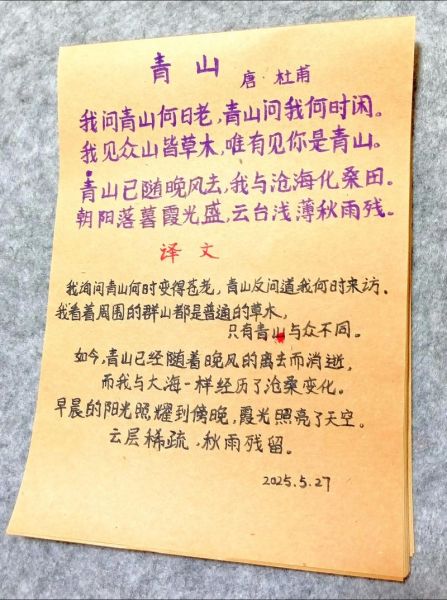 青山
唐·杜甫
我问青山何日老,青山问我何时闲。
我见众山皆草木,唯有见你是青山。
青山已随晚风去,我与沧海化桑田。
朝阳落暮霞光盛,云台浅薄秋雨残。
译文
我询问青山何时变得苍老,青山反问道我何时来访.
我看着周围的群山都是普通的草木,
只有青山与众不同。
如今,青山已经随着晚风的离去而消逝,
而我与大海一样经历了沧桑变化。
早晨的阳光照耀到傍晚,霞光照亮了天空。
云层稀疏,秋雨残留。
2025.5.27